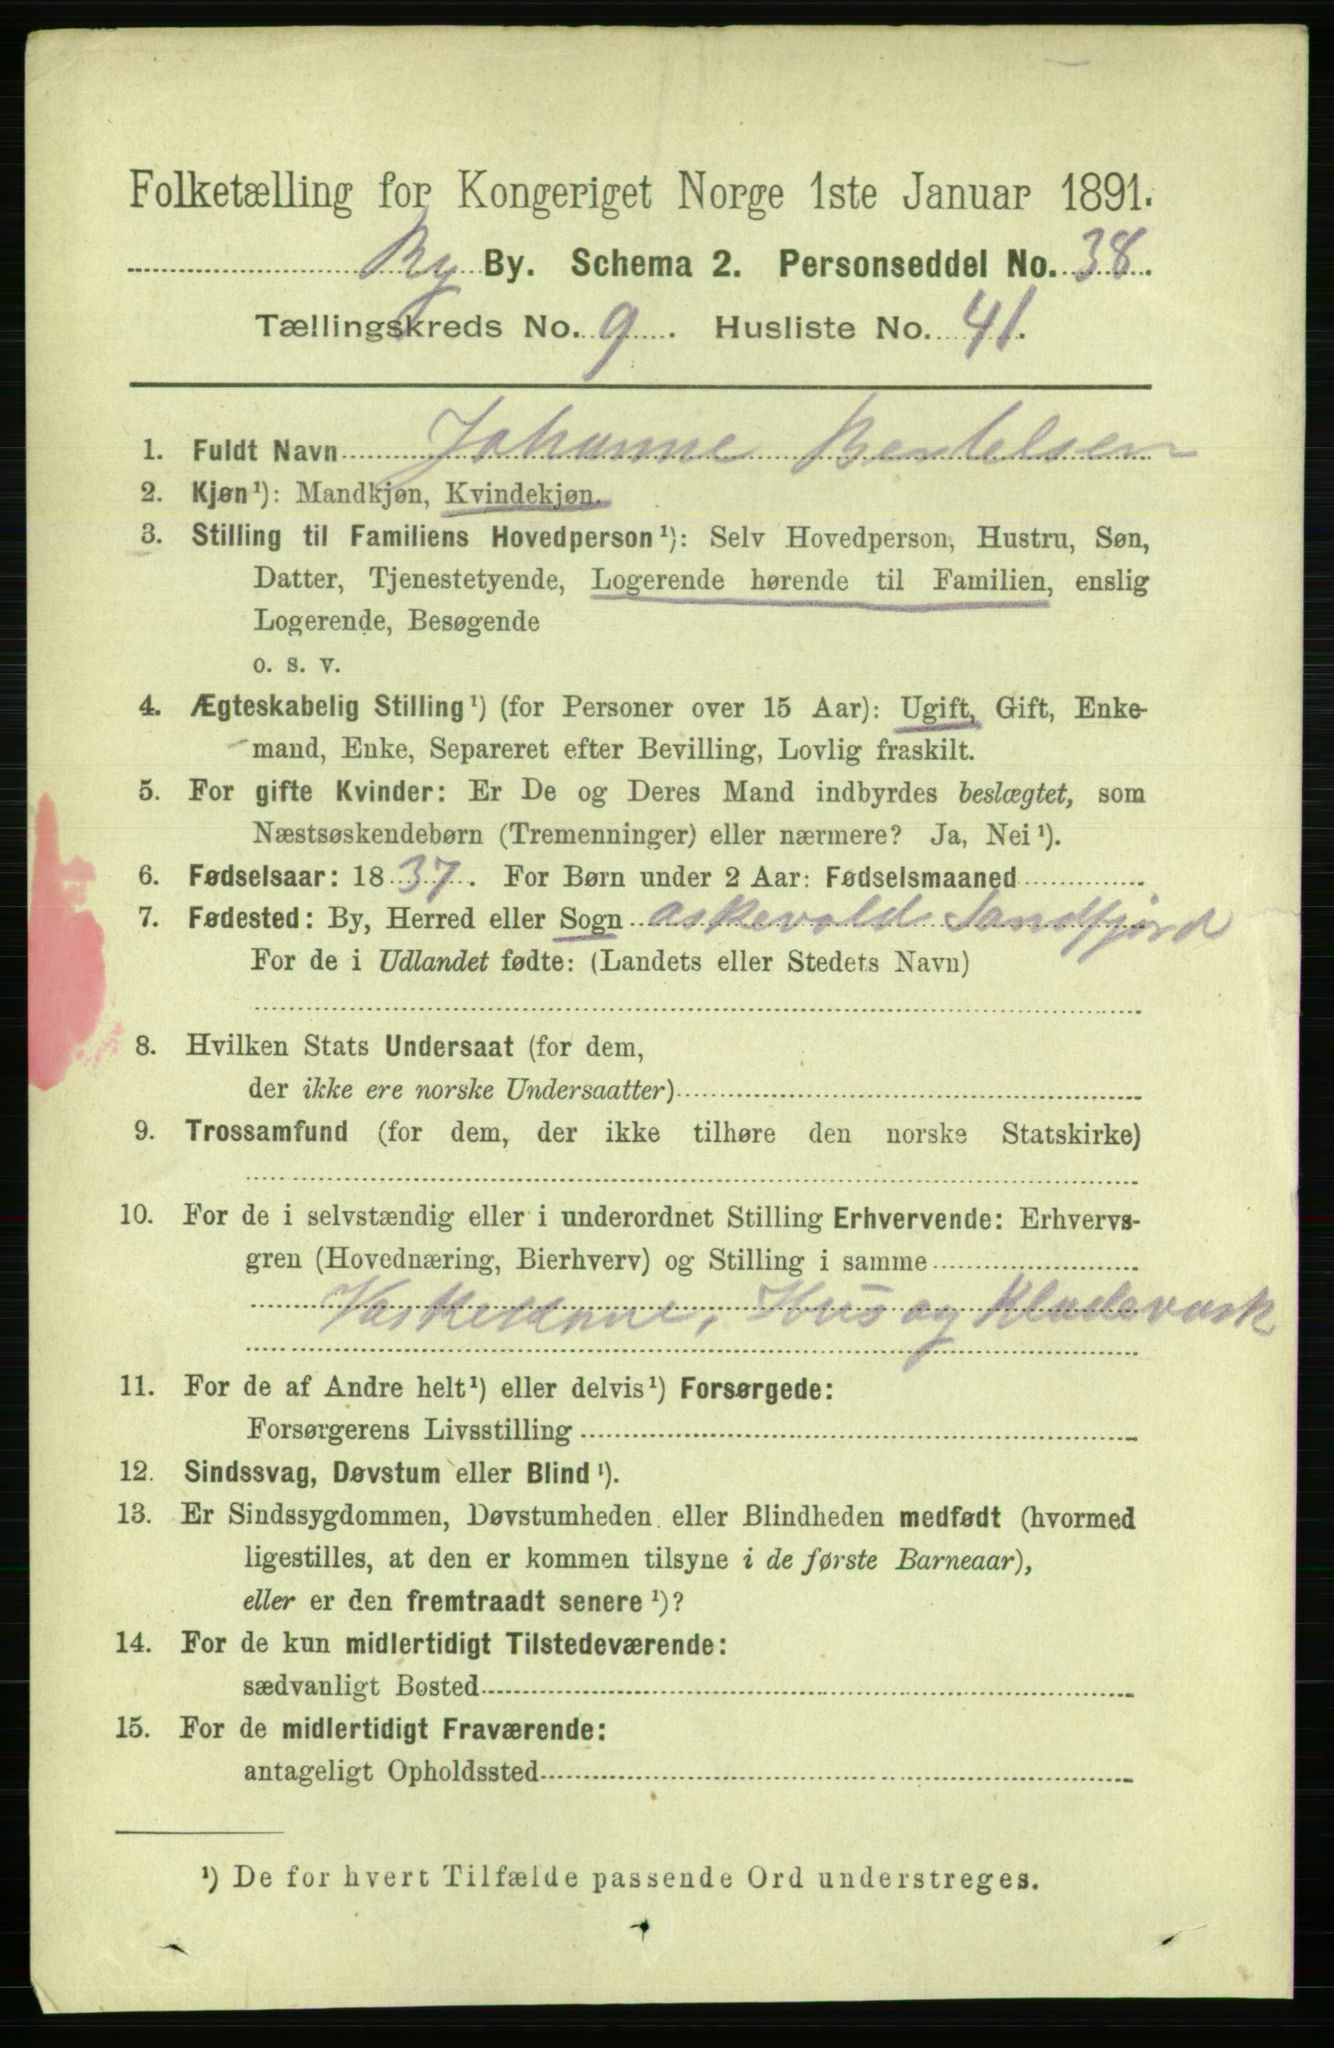 Folketælling for Kongeriget Norge 1ste Januar 1891.
By. Schema 2. Personseddel No. 38.
Tællingskreds No. 9. Husliste No. 41.
1. Fuldt Navn Johanne Bertelsen
2. Kjøn¹): Mandkjøn, Kvindekjøn.
3. Stilling til Familiens Hovedperson¹): Selv Hovedperson, Hustru, Søn,
Datter, Tjenestetyende, Logerende hørende til Familien, enslig
Logerende, Besøgende
o. s. v.
4. Ægteskabelig Stilling¹) (for Personer over 15 Aar): Ugift, Gift, Enke-
mand, Enke, Separeret efter Bevilling, Lovlig fraskilt.
5. For gifte Kvinder: Er De og Deres Mand indbyrdes beslægtet, som
Næstsøskendebørn (Tremenninger) eller nærmere? Ja, Nei¹).
6. Fødselsaar: 1837. For Børn under 2 Aar: Fødselsmaaned
7. Fødested: By, Herred eller Sogn Askevold Sandfjord
For de i Udlandet fødte: (Landets eller Stedets Navn)
8. Hvilken Stats Undersaat (for dem,
der ikke ere norske Undersaatter)
9. Trossamfund (for dem, der ikke tilhøre den norske Statskirke)
10. For de i selvstændig eller i underordnet Stilling Erhvervende: Erhvervs-
gren (Hovednæring, Bierhverv) og Stilling i samme
Vaskekone, Hus og Kladevask
11. For de af Andre helt¹) eller delvis¹) Forsørgede:
Forsørgerens Livsstilling
12. Sindssvag, Døvstum eller Blind¹).
13. Er Sindssygdommen, Døvstumheden eller Blindheden medfødt (hvormed
ligestilles, at den er kommen tilsyne i de første Barneaar),
eller er den fremtraadt senere¹)?
14. For de kun midlertidigt Tilstedeværende:
sædvanligt Bosted
15. For de midlertidigt Fraværende:
antageligt Opholdssted
¹) De for hvert Tilfælde passende Ord understreges.